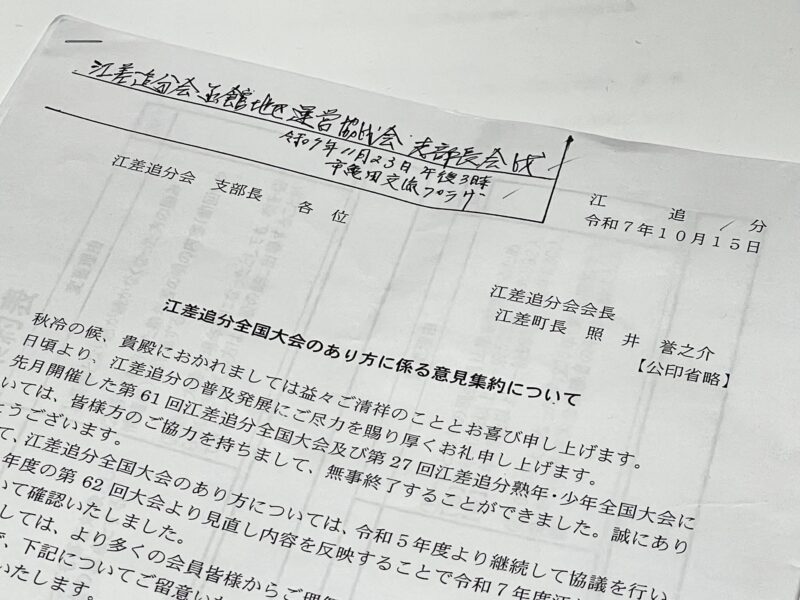 江差追分会函館地区運営協議会 支部長会議
令和7年11月23日午後3時
市亀田交流プラザ
江差追分会 支部長 各位
江 追 分
令和7年10月15日
江差追分会会長
江差町長 照井 誉之介
【公印省略】
江差追分全国大会のあり方に係る意見集約について
秋冷の候、貴殿におかれましては益々ご清祥のこととお喜び申し上げます。
日頃より、江差追分の普及発展にご尽力を賜り厚くお礼申し上げます。
先月開催した第61回江差追分全国大会及び第27回江差追分熟年・少年全国大会に
いては、皆様方のご協力を持ちまして、無事終了することができました。誠にあり
とうございます。
て、江差追分全国大会のあり方については、令和5年度より継続して協議を行い
年度の第62回大会より見直し内容を反映することで令和7年度江
いて確認いたしました。
しては、より多くの会員皆様からご
で、下記についてご留意い
いたします。